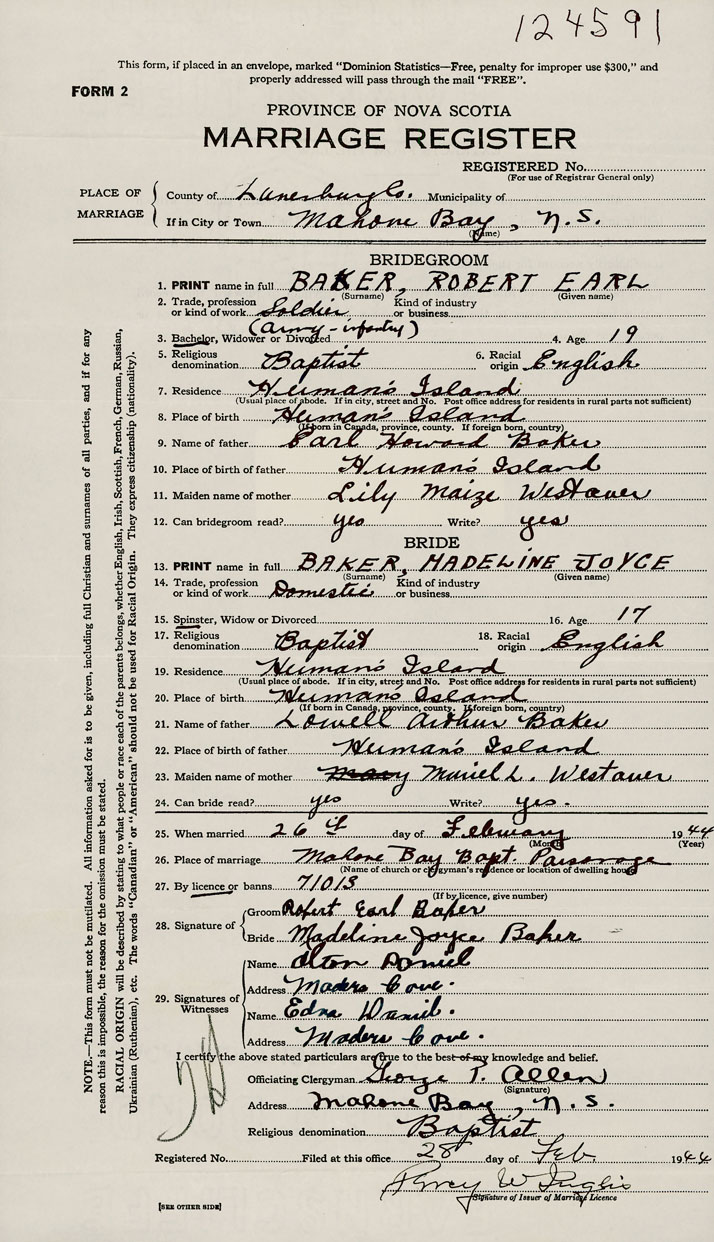 124591
This form, if placed in an envelope, marked "Dominion Statistics—Free, penalty for improper use $300," and
properly addressed will pass through the mail "FREE".
FORM 2
PROVINCE OF NOVA SCOTIA
MARRIAGE REGISTER
REGISTERED No.
(For use of Registrar General only)
PLACE OF MARRIAGE
County of Lunenburg Co. Municipality of
If in City or Town Mahone Bay, N.S.
(Name)
BRIDEGROOM
1. PRINT name in full BAKER, ROBERT EARL
(Surname) (Given name)
2. Trade, profession or kind of work Soldier Kind of industry or business
(Army - infantry)
3. Bachelor, Widower or Divorced 4. Age 19
5. Religious denomination Baptist 6. Racial origin English
7. Residence Heiman's Island
(Usual place of abode. If in city, street and No. Post office address for residents in rural parts not sufficient)
8. Place of birth Heiman's Island
(If born in Canada, province, county. If foreign born, country)
9. Name of father Earl Howard Baker
10. Place of birth of father Heiman's Island
11. Maiden name of mother Lily Maize Westaver
12. Can bridegroom read? yes Write? yes
BRIDE
13. PRINT name in full BAKER, MADELINE JOYCE
(Surname) (Given name)
14. Trade, profession or kind of work Domestic Kind of industry or business
15. Spinster, Widow or Divorced 16. Age 17
17. Religious denomination Baptist 18. Racial origin English
19. Residence Heiman's Island
(Usual place of abode. If in city, street and No. Post office address for residents in rural parts not sufficient)
20. Place of birth Heiman's Island
(If born in Canada, province, county. If foreign born, country)
21. Name of father Lowell Arthur Baker
22. Place of birth of father Heiman's Island
23. Maiden name of mother Muriel L. Westaver
24. Can bride read? yes Write? yes.
25. When married 26th day of February 1944
(Month) (Year)
26. Place of marriage Mahone Bay Bapt. Parsonage
(Name of church or clergyman's residence or location of dwelling house)
27. By licence or banns 71013
(If by licence, give number)
28. Signature of
Groom Robert Earl Baker
Bride Madeline Joyce Baker
29. Signatures of Witnesses
Name Alton Daniel
Address Maders Cove.
Name Edna Daniel.
Address Maders Cove.
I certify the above stated particulars are true to the best of my knowledge and belief.
Officiating Clergyman George P. Allen
(Signature)
Address Mahone Bay, N.S.
Religious denomination Baptist
Registered No. Filed at this office 28 day of Feb 1944
Percy W Inglis
Signature of Issuer of Marriage Licence
[SEE OTHER SIDE]
NOTE.—This form must not be mutilated. All information asked for is to be given, including full Christian and surnames of all parties, and if for any
reason this is impossible, the reason for the omission must be stated.
RACIAL ORIGIN will be described by stating to what people or race each of the parents belongs, whether English, Irish, Scottish, French, German, Russian,
Ukrainian (Ruthenian), etc. The words "Canadian" or "American" should not be used for Racial Origin. They express citizenship (nationality).